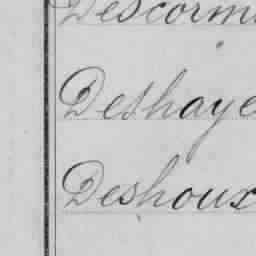 Descorm
Deshaye
Deshoux